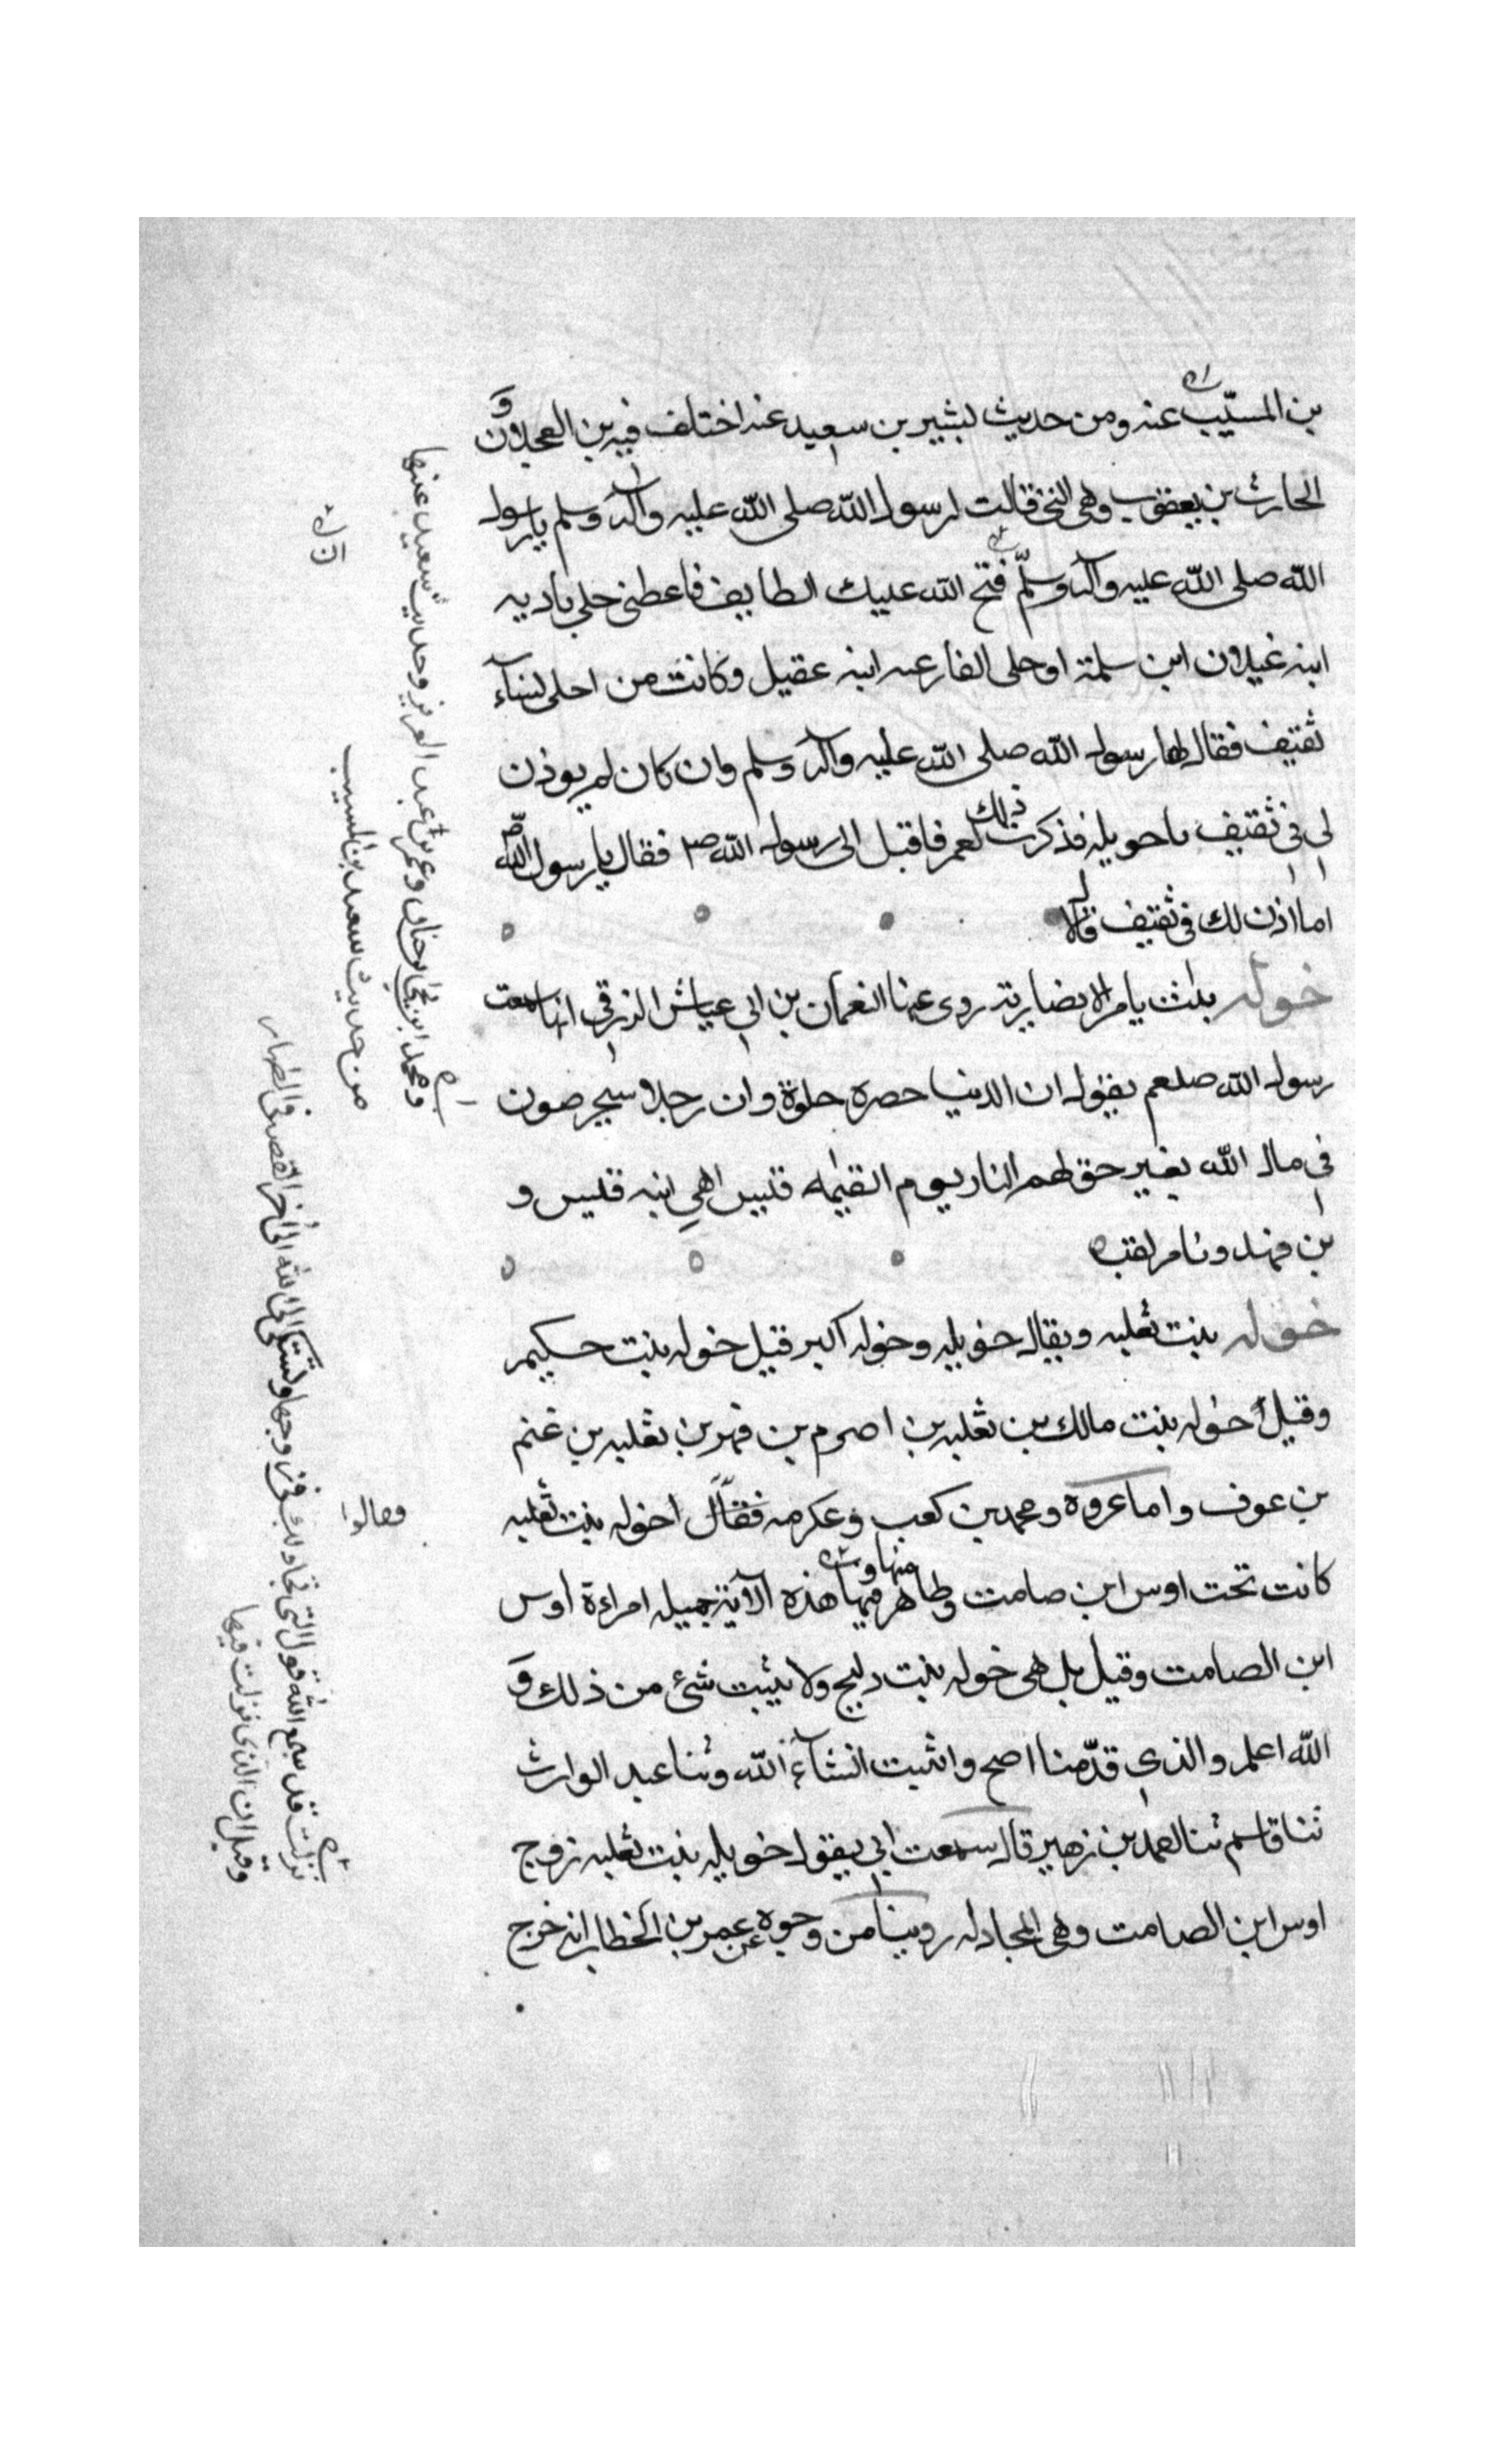 بن المسيّب عنه ومن حديث لبثير بن سعيد عنه اختلف فيه بن العجلان و
الحارث بن يعقوب وهى التى قالت لرسول الله صلى الله عليه وآله وسلم يارسول
الله صلى الله عليه وآله وسلّم فتح الله عليك الطايف فاعطنى حلى بادیه
ابنه غيلان ابن سلمة او حلى الفارعه ابنه عقيل وكانت من احلى نسآء
ثقيف فقال لها رسول الله صلى الله عليه وآله وسلم وان كان لم يوذن
لى فى ثقيف ياحويله فذكرت ذلك لعمر فاقبل الى رسول الله ص فقال يارسول الله ص
اما اذن لك فى ثقيف قال لا
خوله روى عنها النعمان بن ابى عياش الزرقى انها سمعت
رسول الله صلعم يقول ان الدنيا حصره حلوة وان رجلا سيجرصون
فى مال الله بغير حق لهم النار يوم القيمه قيس اهى ابنه قيس و
بن فهد و لقب
خوله بنت ثعلبه ويقال خويله وخوله اكبر قيل خوله بنت حكيم
وقيل خوله بنت مالك بن ثعلبه بن اصرم بن فهر بن ثعلبه بن غنم
بن عوف واما عروه ومحمد بن كعب وعكرمه فقال خوله بنت ثعلبه
كانت تحت اوس ابن صامت وظاهر منها و فيها هذه الآية جميله امراءة اوس
ابن الصامت وقيل بل هى خوله بنت دليج ولا يثبت شئ من ذلك و
الله اعلم والذى قدّمنا اصح واثبت انشآء الله وثنا عبد الوارث
ثنا قاسم ثنا احمد بن زهير قال سمعت ابى يقول خويله بنت ثعلبه زوج
اوس ابن الصامت وهى المجادله روينا من وجوه عن عمر بن الخطاب انه خرج
وحديث سعيد عنها
من حديث سعيد بن المسيب
فقالوا
نزلت قد سمع الله قول التى تجادلك فى زوجها وتشتكى الى الله الى اخر القصه فى الظهار
وقيل ان الذى نزلت فيها